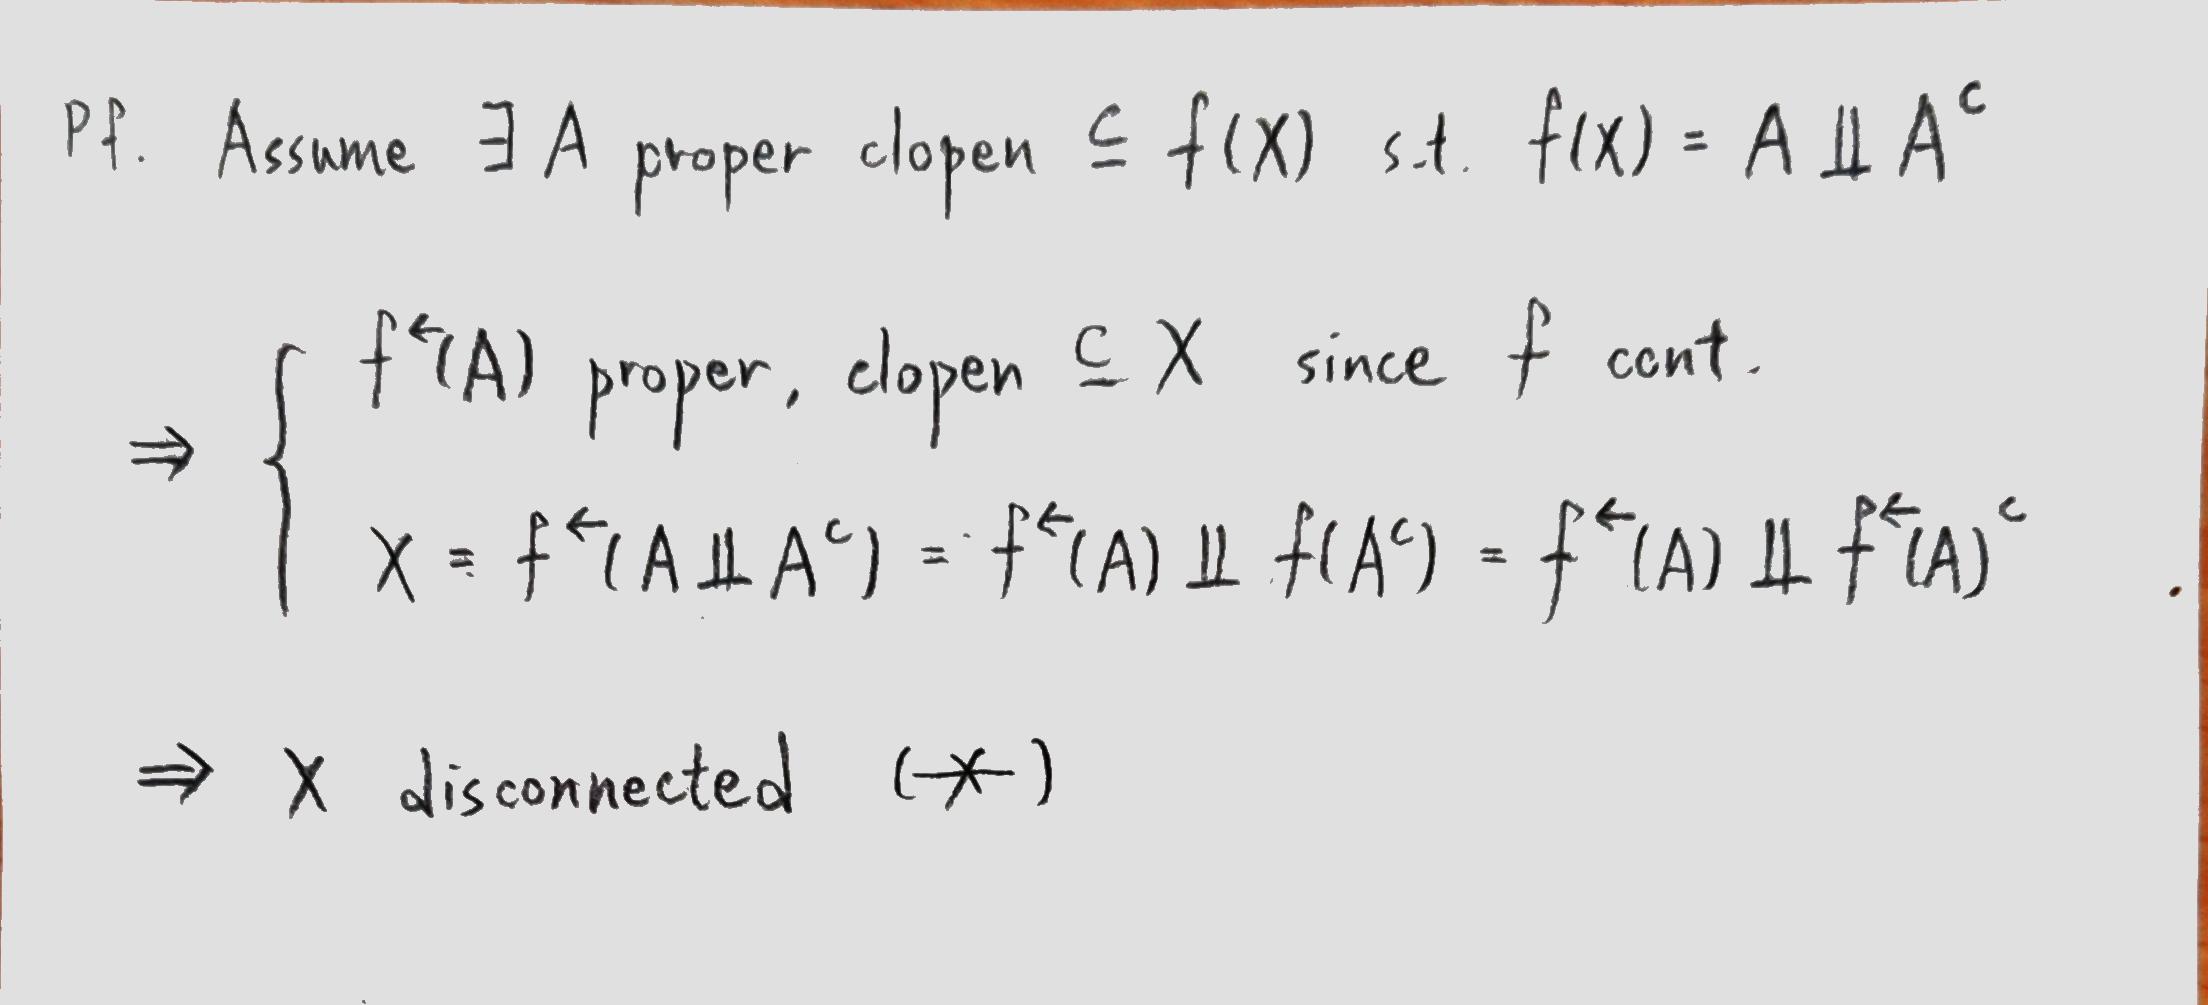 Pf. Assume ∃ A proper clopen ⊆ f(X) s.t. f(X) = A ⨿ Aᶜ
f^←(A) proper, clopen ⊆ X since f cont.
⇒ {
X = f^←(A ⨿ Aᶜ) = f^←(A) ⨿ f(Aᶜ) = f^←(A) ⨿ f^←(A)ᶜ
⇒ X disconnected (→×←)